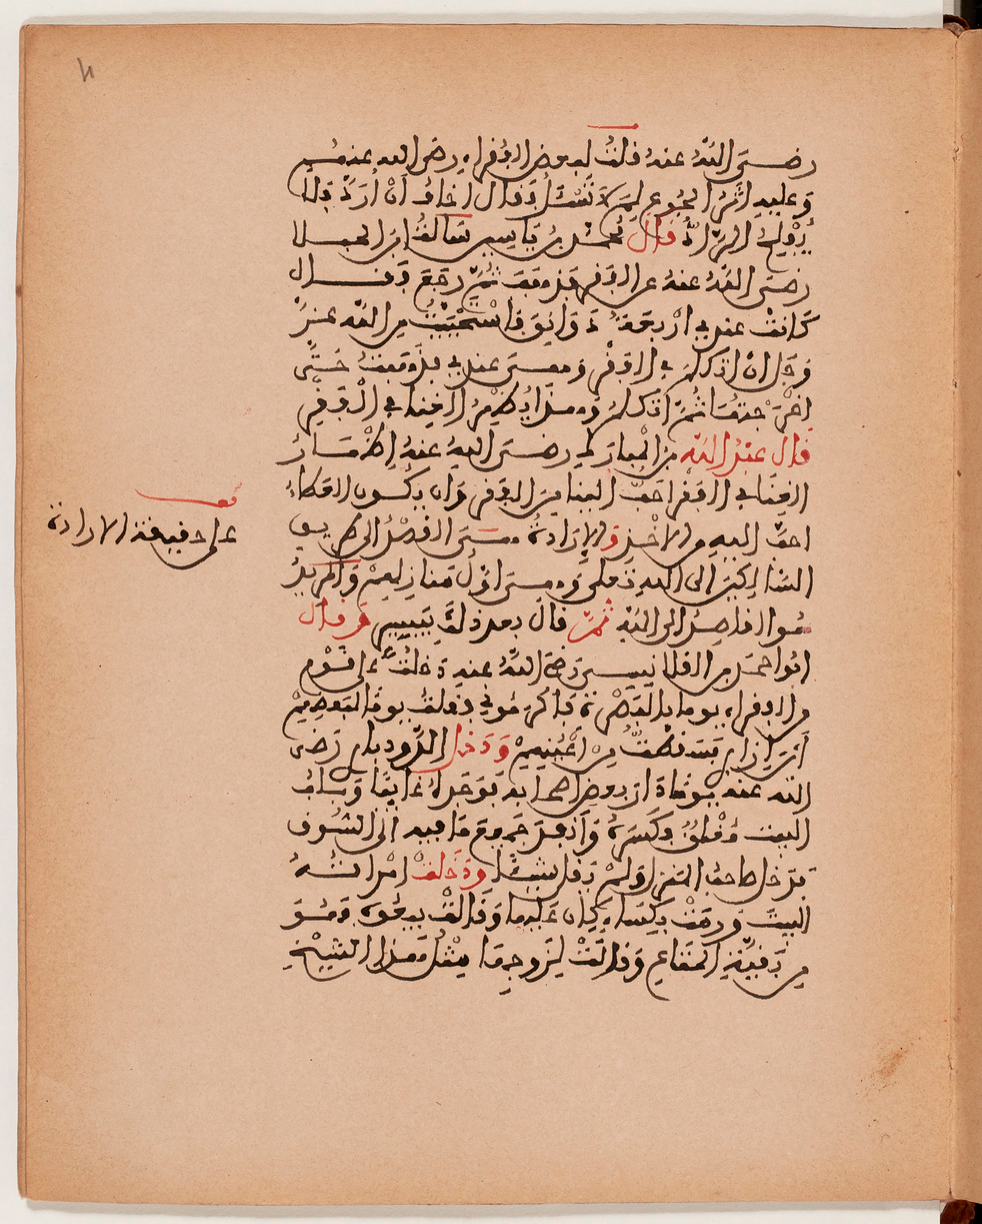 رضى الله عنه قلت لبعض الفقراء رضى الله عنهم
وعليه اثر الجوع لم لا تسئل فقال اخاف أن أرد فلا
يفلح الراد قال محمد بن ياسين سالت ابن الجلا
رضى الله عنه عن الفقر فذهب ثم رجع فقال
كانت عندي اربعة دوانق فاستحييت من الله عز
وجل ان اتكلم في الفقر وهى عندي فذهبت حتى
اخرجتها ثم اتكلم وهذا اظهر الغنا في الفقر
قال عبد الله بن المبارك رضى الله عنه إظهار
الغنا في الفقر احب الينا من الفقر وان يكون العطاء
احب اليه من الاخذ والإرادة هى القصد الى طريق
السالكين الى الله تعلى وهى اول منازلهم والمريد
هو القاصد الى الله ثم قال بعد ذلك بيسير وقال
ابو احمد القلانيسي رضى الله عنه دخلت على قوم
من الفقراء يوما بالبصرة فاكرموني فقلت يوما لبعضهم
أين إزاري فسقطت من أعينهم ودخل الروذباري رضى
الله عنه يوما دار بعض اصحابه فوجده غايبا وباب
البيت مغلق فكسره وأنفد جميع ما فيه الى السوق
فدخل صاحب المنزل ولم يقل شيئا ودخلت امراته
البيت ورمت بكساء كان عليها وقالت بيعوه فهو
من بقية المتاع وقالت لزوجها مثل هذا الشيخ
قف
على حقيقة الارادة